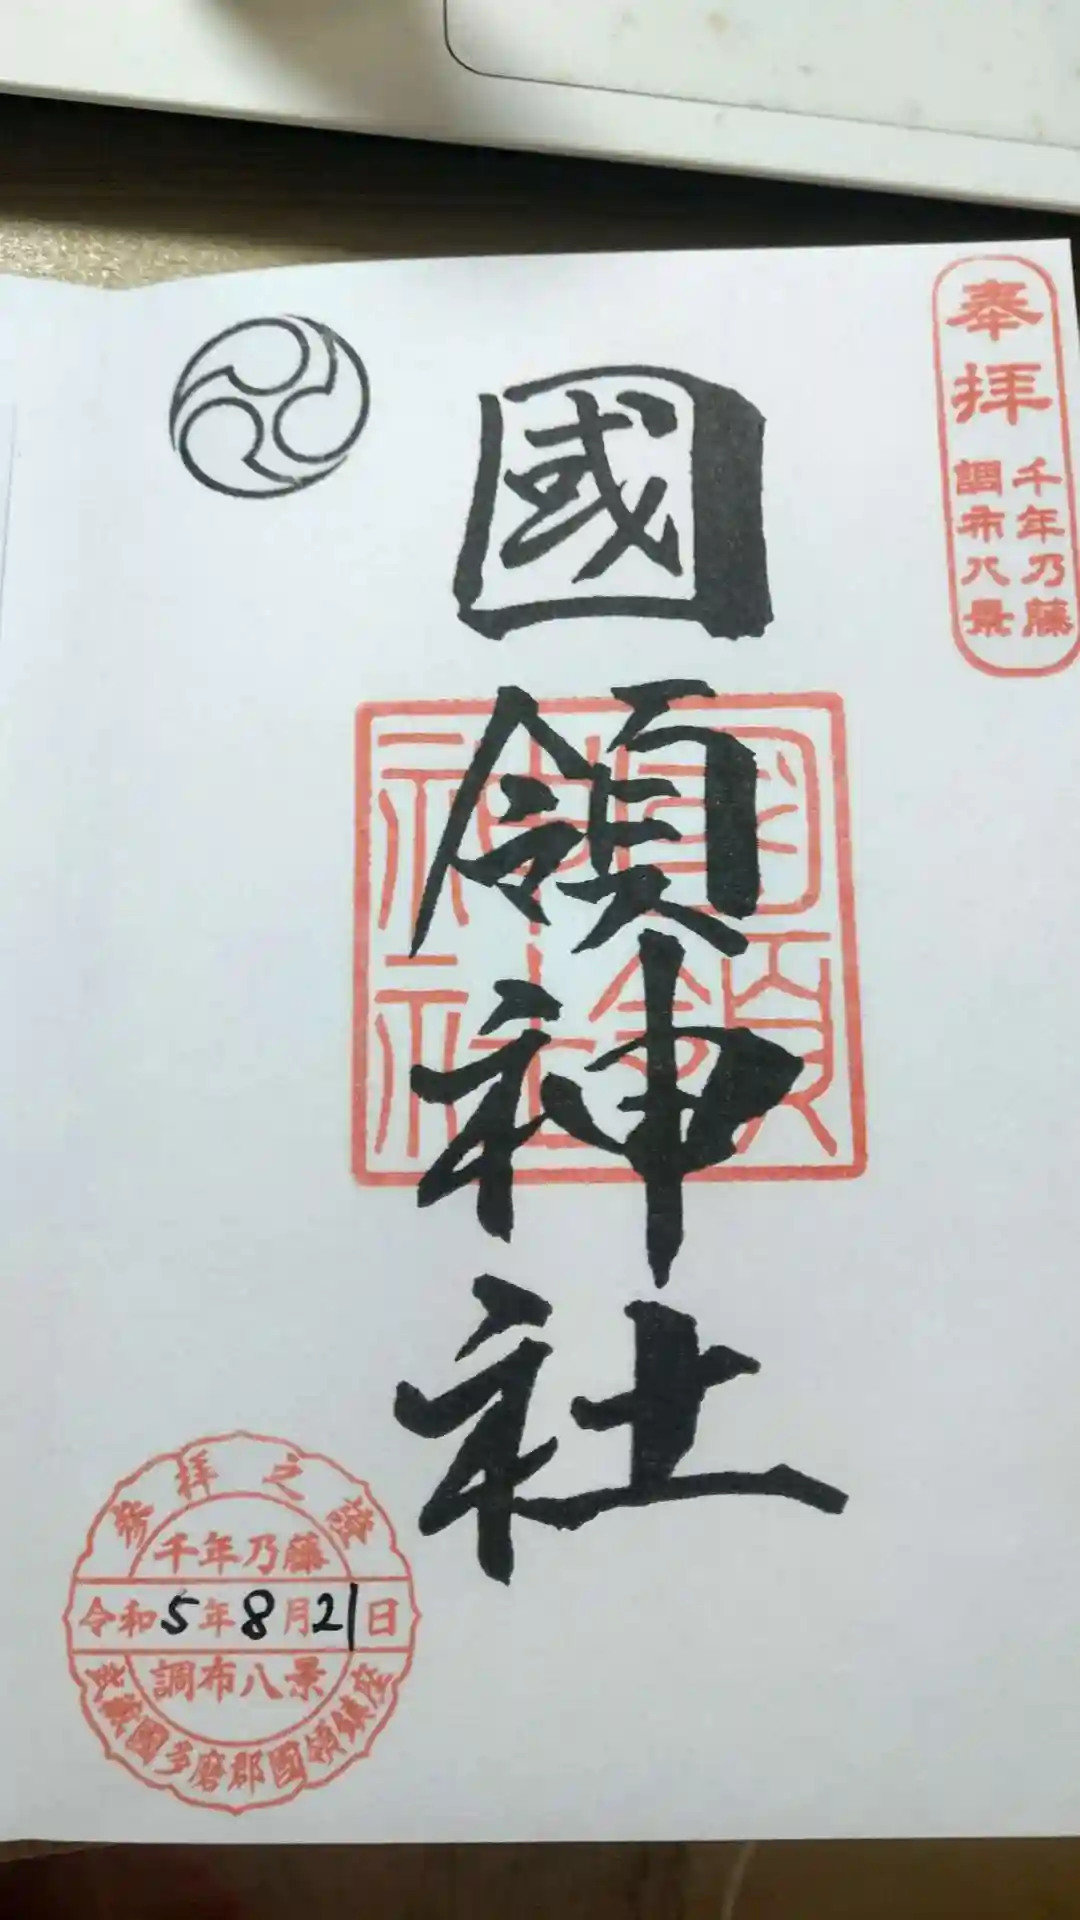 奉拝
千年乃藤
調布八景
國領神社
國領
神社
参拝之證
千年乃藤
令和5年8月21日
調布八景
武蔵國多磨郡國領鎮座